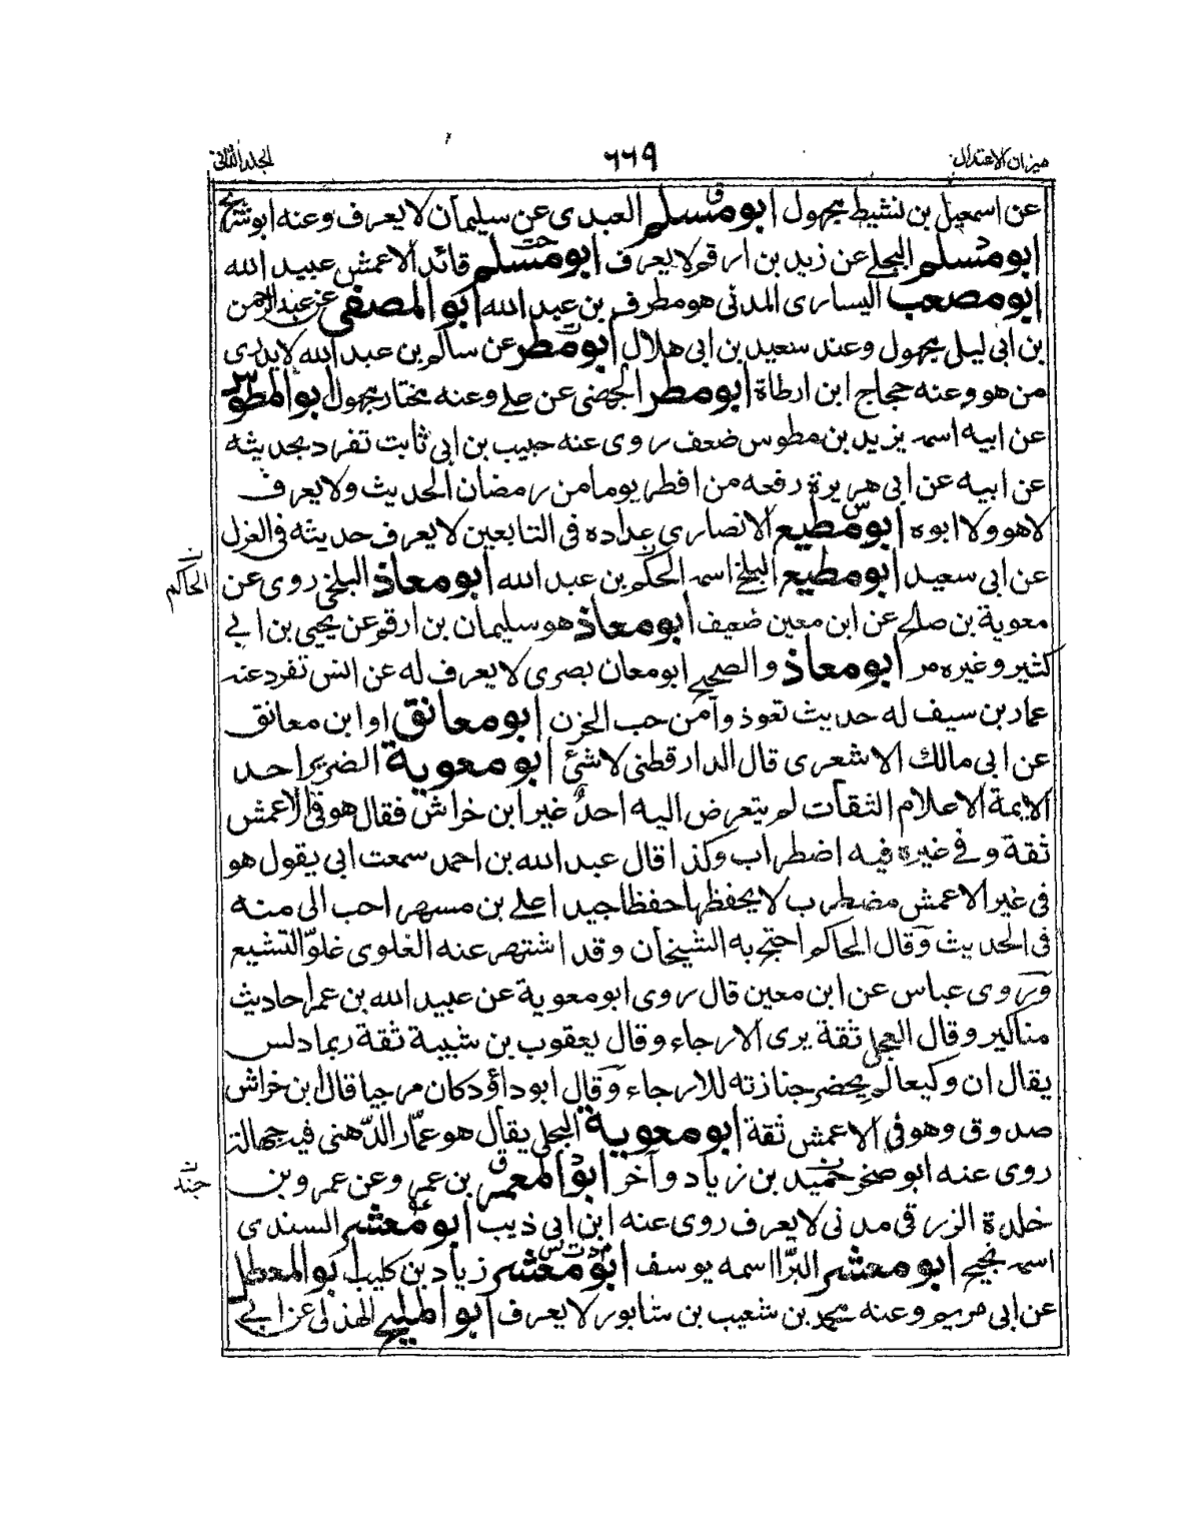 ميزان الاعتدال ٦٦٩ الجلد الثانى
عن اسمعيل بن نشيط مجهول ابو مسلم العبدى عن سليمان لا يعرف وعنه ابو شريح
ابو مسلم البجلے عن زيد بن ارقم لا يعرف ابو مسلم قائد الاعمش عبيد الله
ابو مصعب اليسارى المدنى هو مطرف بن عبد الله ابو المصفى عن عبد الرحمن
بن ابى ليلى مجهول وعند سعيد بن ابى هلال ابو مطر عن سالم بن عبد الله لا يدرى
من هو وعنه حجاج ابن ارطاة ابو مطر الجهضى عن علے وعنه مختار مجهول ابو المطوس
عن ابيه اسمه يزيد بن مطوس ضعف روى عنه حبيب بن ابى ثابت تفرد بحديثه
عن ابيه عن ابى هريرة رفعه من افطر يوما من رمضان الحديث ولا يعرف
لا هو ولا ابوه ابو مطيع الانصارى عداده فى التابعين لا يعرف حديثه فى العزل
عن ابى سعيد ابو مطيع البلخے اسمه الحكم بن عبد الله ابو معاذ البلخى روى عن
ن الحاكم
معوية بن صالح عن ابن معين ضعيف ابو معاذ هو سليمان بن ارقم عن يحيى بن ابے
كثير وغيره مر ابو معاذ والصحيح ابو معان بصرى لا يعرف له عن انس تفرد عنه
عمار بن سيف له حديث تعوذ وامن حب الحزن ابو معانق او ابن معانق
عن ابى مالك الاشعرى قال الدارقطنى لا شئ ابو معوية الضرير احد
الايمة الاعلام الثقات لم يتعرض اليه احد غير ابن خراش فقال هو فى الاعمش
ثقة وفے غيره فيه اضطراب وكذا قال عبد الله بن احمد سمعت ابى يقول هو
فى غير الاعمش مضطرب لا يحفظها حفظا جيدا علے بن مسهر احب الى منه
فى الحديث وقال الحاكم احتج به الشيخان وقد اشتهر عنه الغلوى غلوّ التشيع
وروى عباس عن ابن معين قال روى ابو معوية عن عبيد الله بن عمر احاديث
مناكير وقال العجلى ثقة يرى الارجاء وقال يعقوب بن شيبة ثقة ربما دلس
يقال ان وكيعا لم يحضر جنازته للارجاء وقال ابو داؤد كان مرجيا قال ابن خراش
صدوق وهو فى الاعمش ثقة ابو معوية البجلى يقال هو عمّار الدّهنى فيه جهالة
روى عنه ابو صخر حميد بن زياد وآخر ابو المعمر بن عمر وعن عمرو بن
ن جند
خلدة الزرقى مدنى لا يعرف روى عنه ابن ابى ذيب ابو معشر السندى
اسمه نجيح ابو معشر البرّا اسمه يوسف ابو معشر زياد بن كليب ابو المعطل
عن ابى مريم وعنه محمد بن شعيب بن شابور لا يعرف ابو المليح الهذلى عن ابے